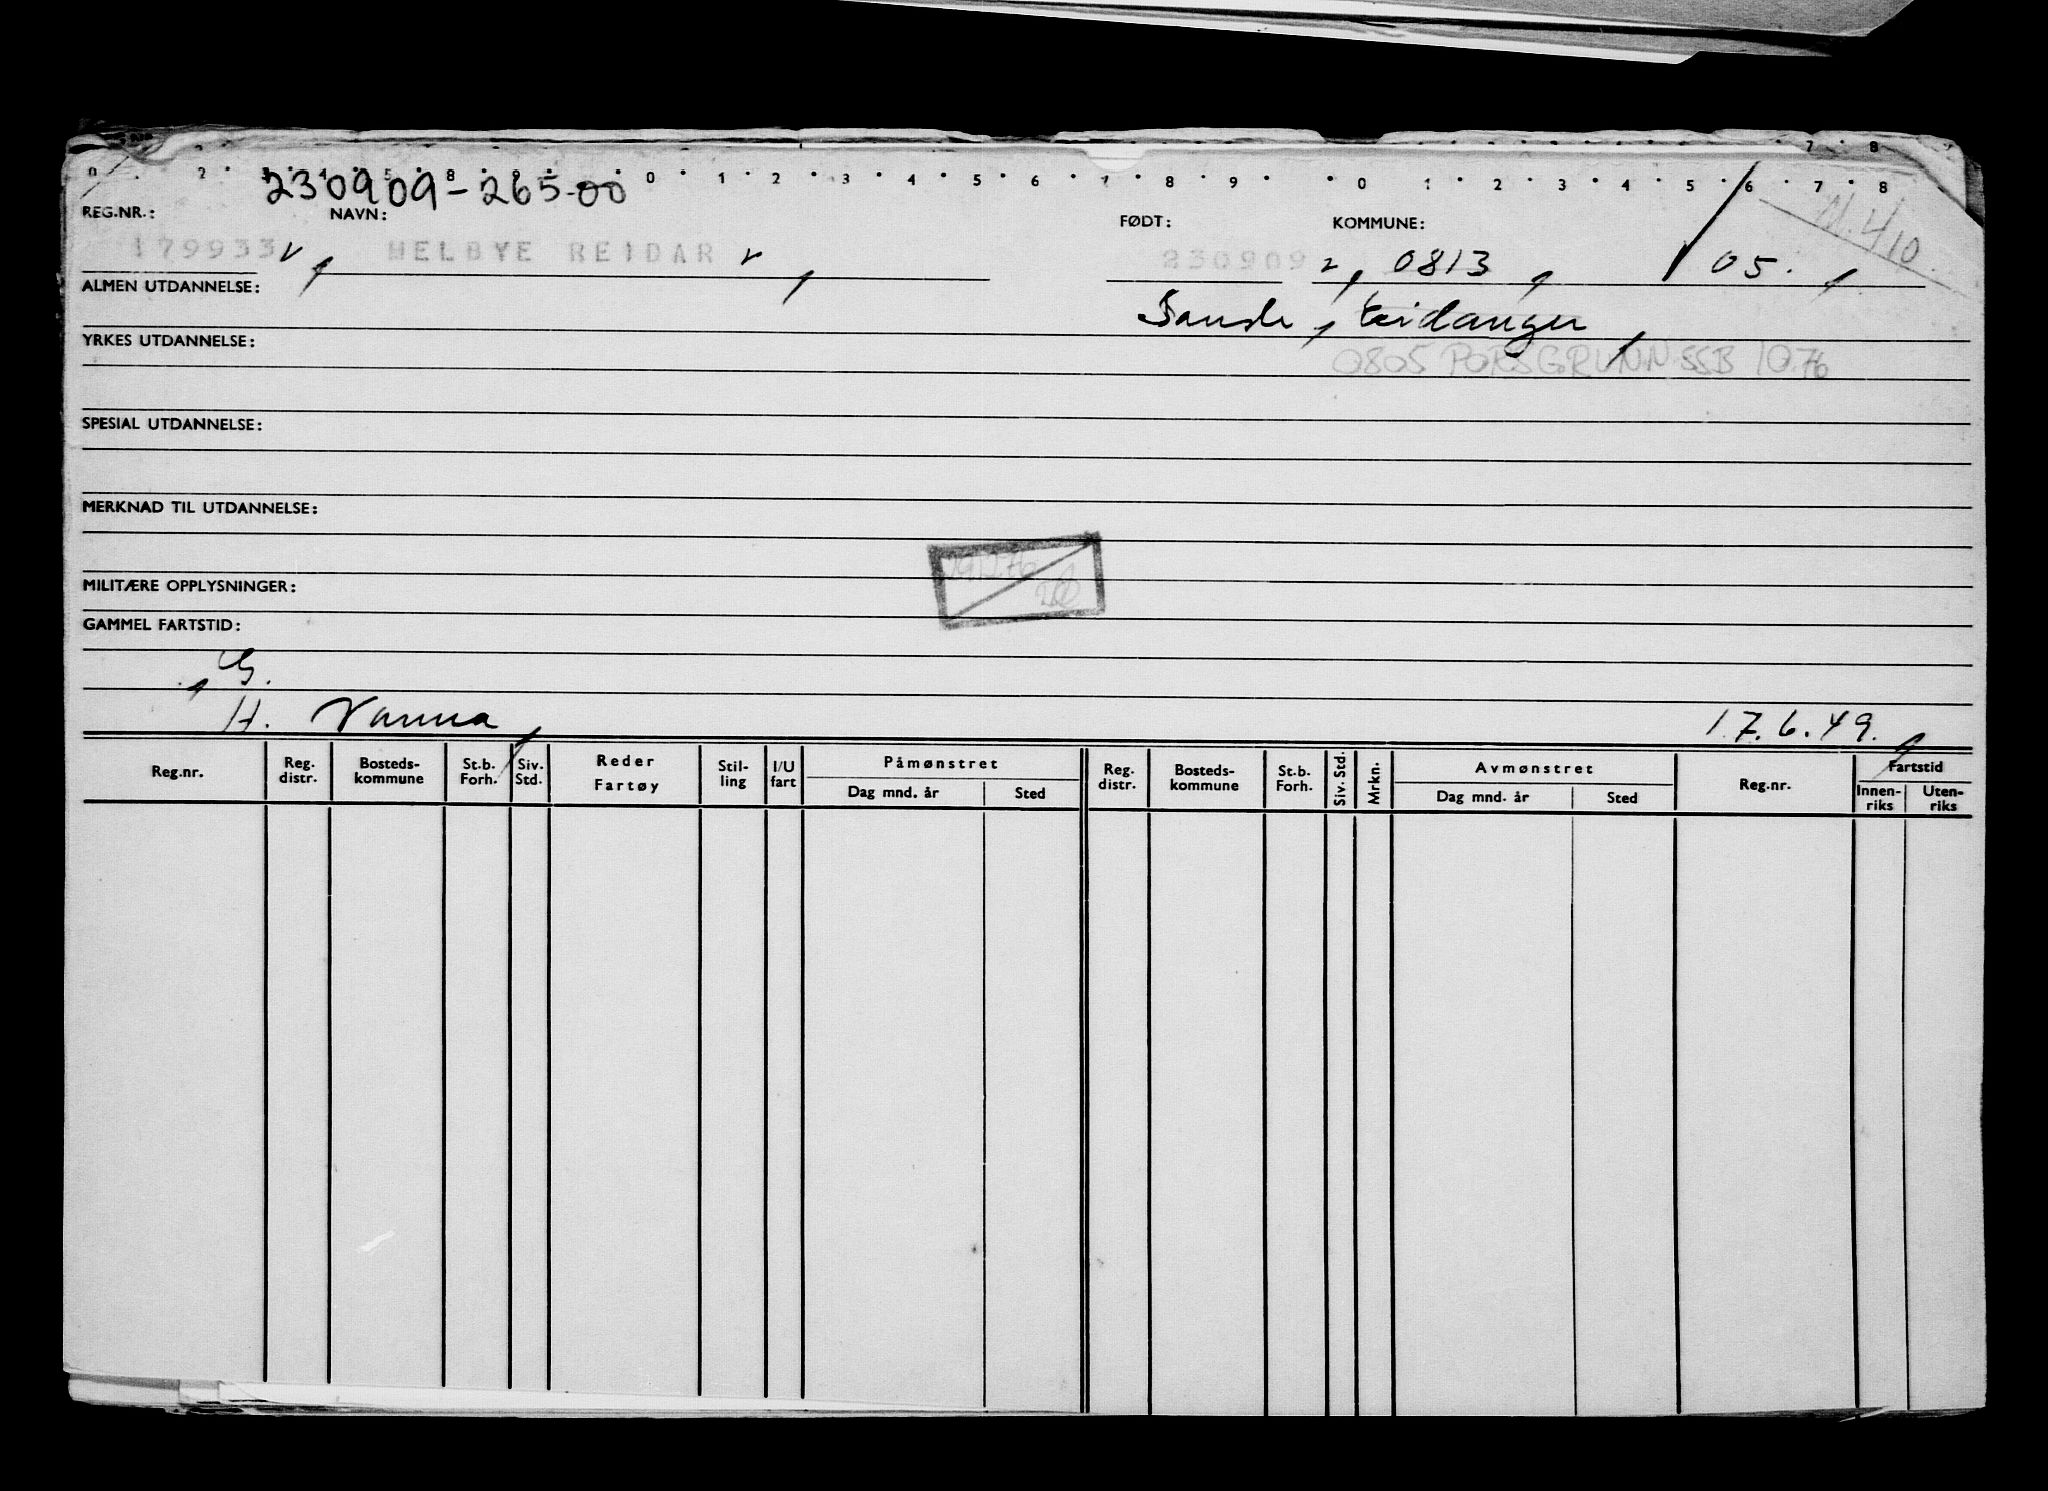 7 • 8
0 2 • 3 • 4 • 5 • 8 • 9 • • 0 • 1 • 2 • 3 • 4 • 5 • 6 • 7 • 8 • 9 • • 0 • 1 • 2 • 3 • 4 • 5 • 6 • 7 • 8
230909-265-00
REG.NR.: NAVN: FØDT: KOMMUNE:
179933 HELBYE REIDAR 230909 0813 05.
ALMEN UTDANNELSE:
Sande, Eidanger
YRKES UTDANNELSE:
0805 PORSGRUNN SSB 10.76
SPESIAL UTDANNELSE:
MERKNAD TIL UTDANNELSE:
MILITÆRE OPPLYSNINGER:
GAMMEL FARTSTID:
G.
H. Vanna 17.6.49.
Reg.nr. Reg. distr. Bosteds-kommune St.b. Forh. Siv. Std. Reder Fartøy Stil-ling I/U fart Påmønstret Dag mnd. år Sted Reg. distr. Bosteds-kommune St.b. Forh. Siv. Std. Mrkn. Avmønstret Dag mnd. år Sted Reg.nr. Fartstid Innen-riks Uten-riks